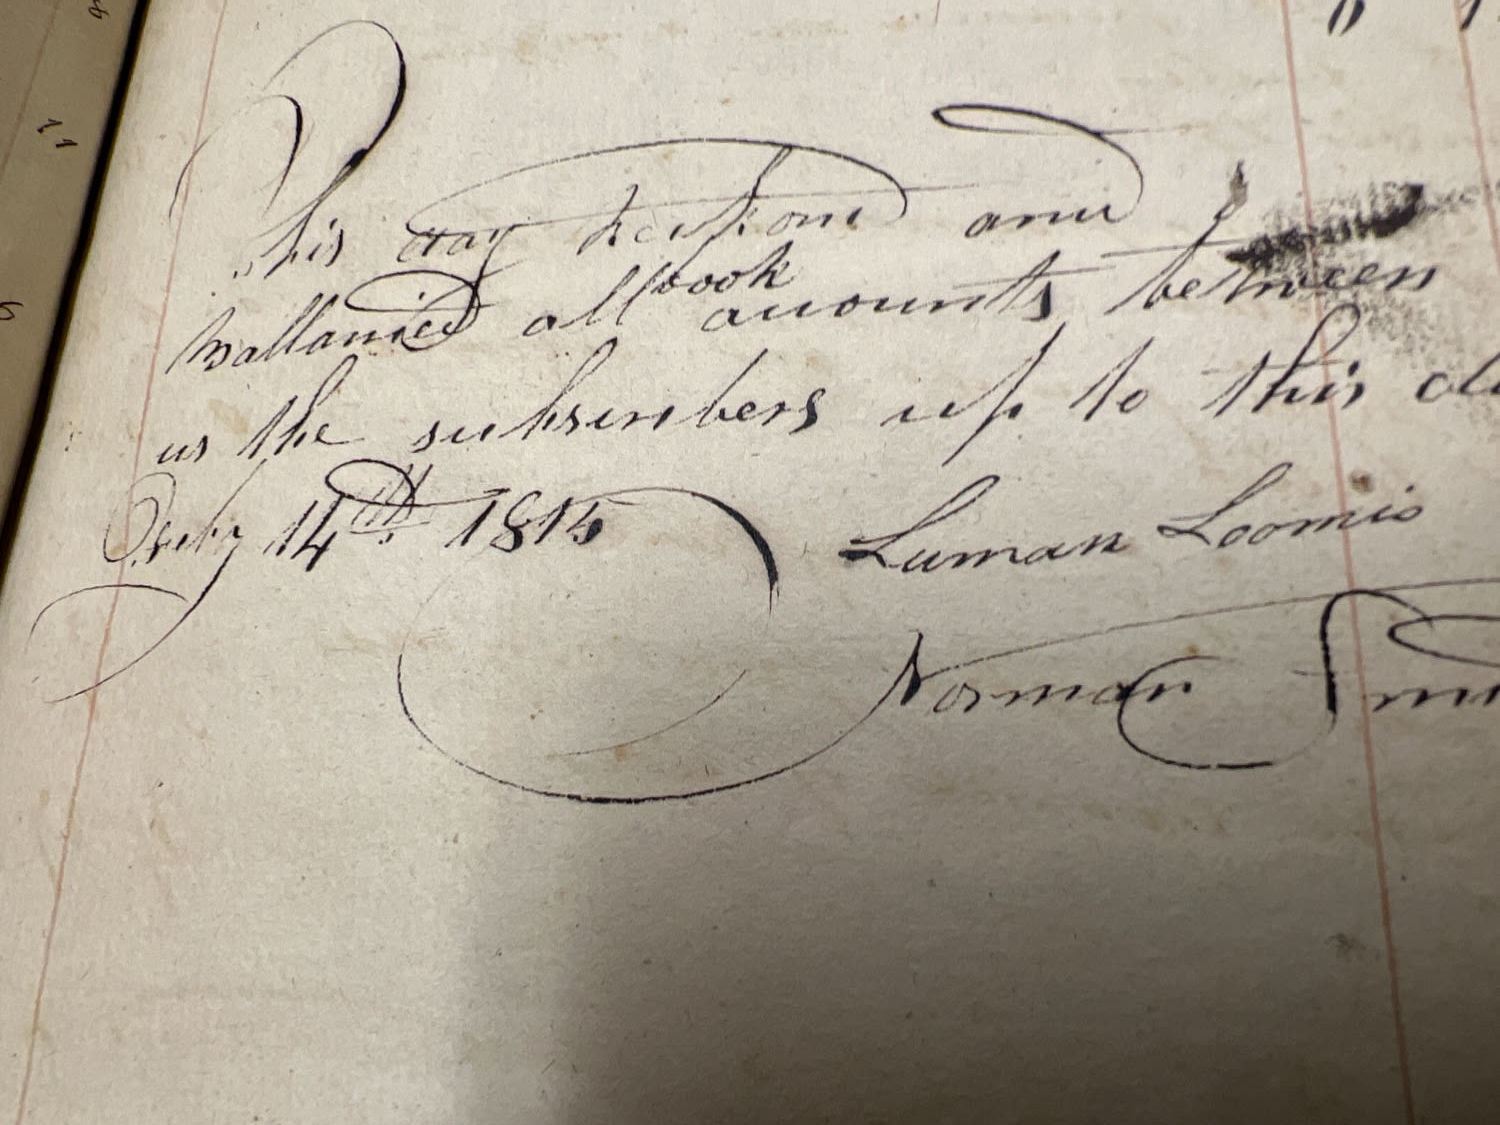 This day reckond and
Ballanced all book accounts between
us the subscribers up to this
14th 1815 Luman Loomis
Norman